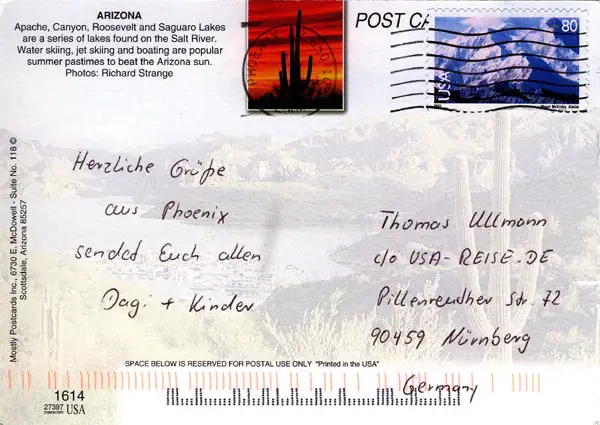 ARIZONA
Apache, Canyon, Roosevelt and Saguaro Lakes
are a series of lakes found on the Salt River.
Water skiing, jet skiing and boating are popular
summer pastimes to beat the Arizona sun.
Photos: Richard Strange
POST CA
80
USA
Mount McKinley, Alaska
Mostly Postcards Inc., 6730 E. McDowell - Suite No. 118 ©
Scottsdale, Arizona 85257
Herzliche Grüße
aus Phoenix
sendet Euch allen
Dagi + Kinder
Thomas Ullmann
c/o USA-REISE.DE
Pillenreuther Str. 72
90459 Nürnberg
Germany
SPACE BELOW IS RESERVED FOR POSTAL USE ONLY "Printed in the USA"
1614
27397
USA